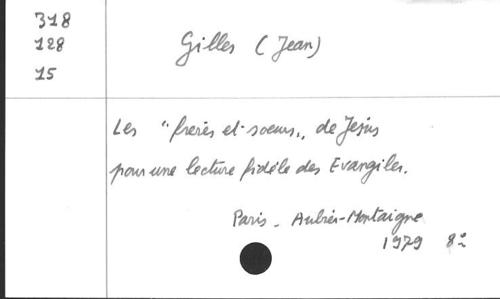 318
128
15
Gilles (Jean)
Les "frères et soeurs„ de Jésus
pour une lecture fidèle des Evangiles.
Paris - Aubier-Montaigne
1979 8º